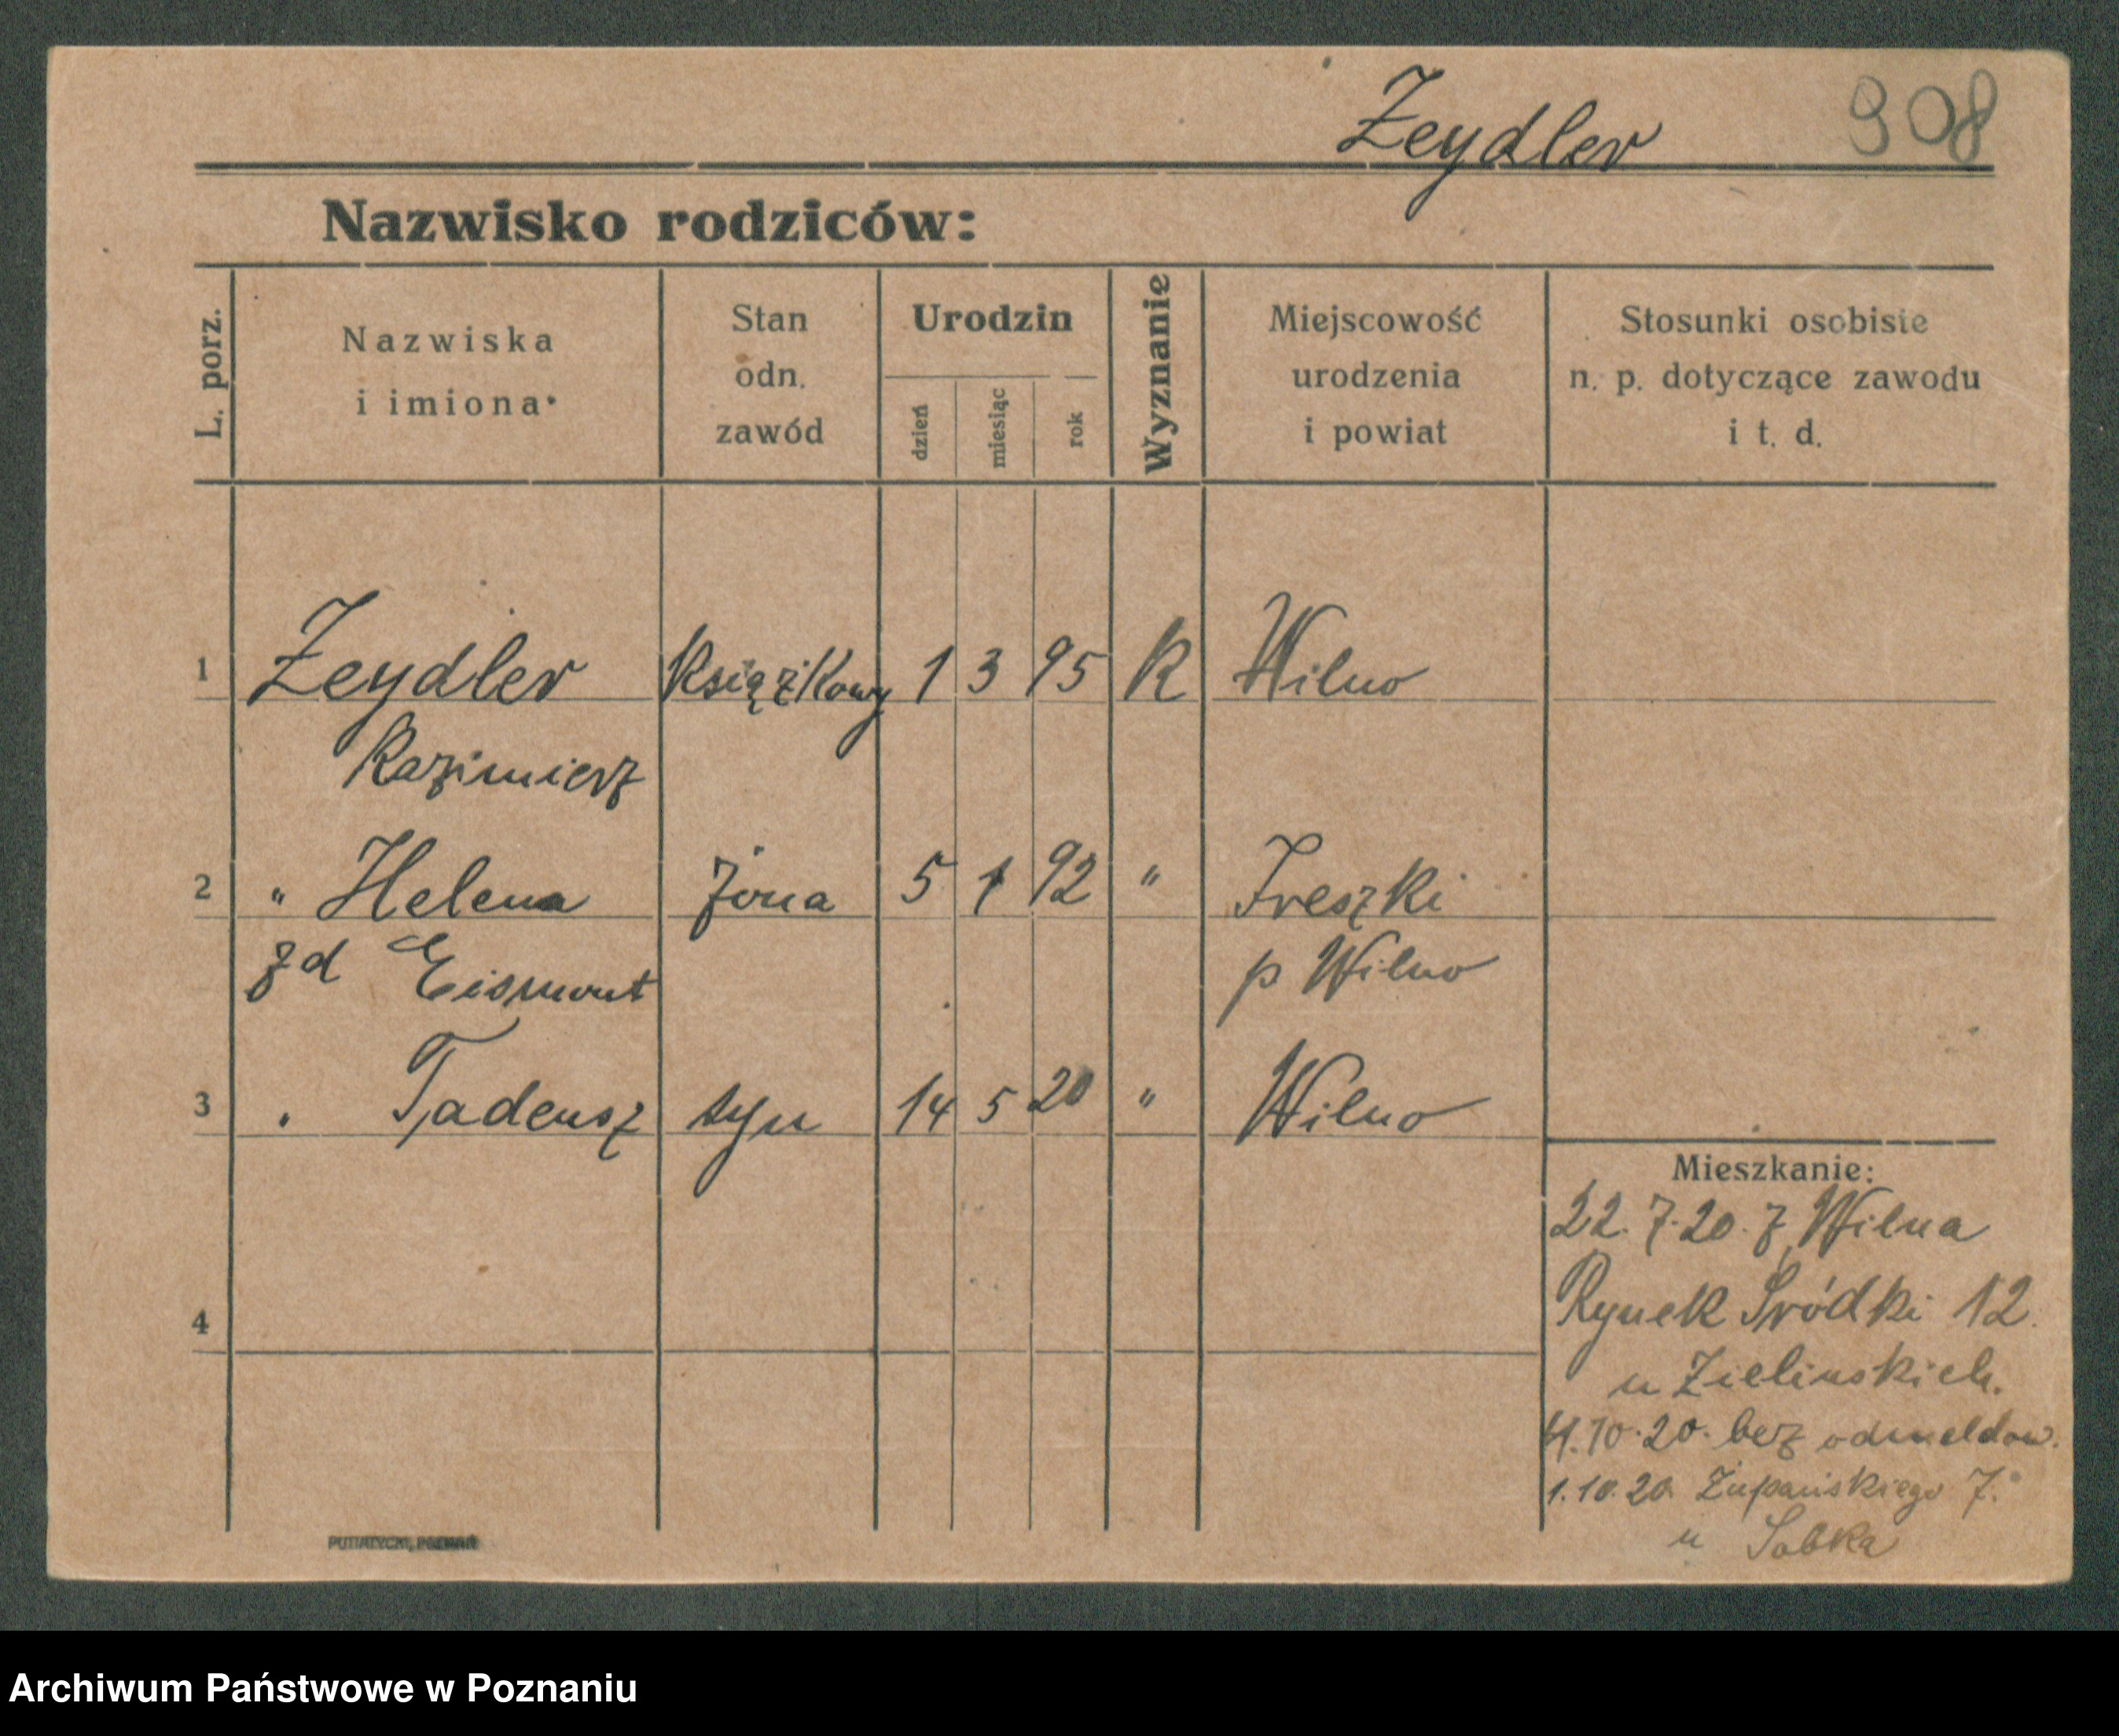 Zeydler 908
Nazwisko rodziców:
L. porz.
Nazwiska
i imiona
Stan
odn.
zawód
Urodzin
dzień
miesiąc
rok
Wyznanie
Miejscowość
urodzenia
i powiat
Stosunki osobiste
n. p. dotyczące zawodu
i t. d.
1 Zeydler książkowy 1 3 95 K Wilno
Kazimierz
2 " Helena żona 5 1 92 " Treszki
zd Eismont p Wilno
3 " Tadeusz syn 14 5 20 " Wilno
Mieszkanie:
22.7.20. z Wilna
4 Rynek Śródki 12.
u Zielinskich.
10.20. bez odmeldow.
1.10.20 Żupańskiego 7.
u Sobka
PUTIATYCKI, POZNAŃ
Archiwum Państwowe w Poznaniu